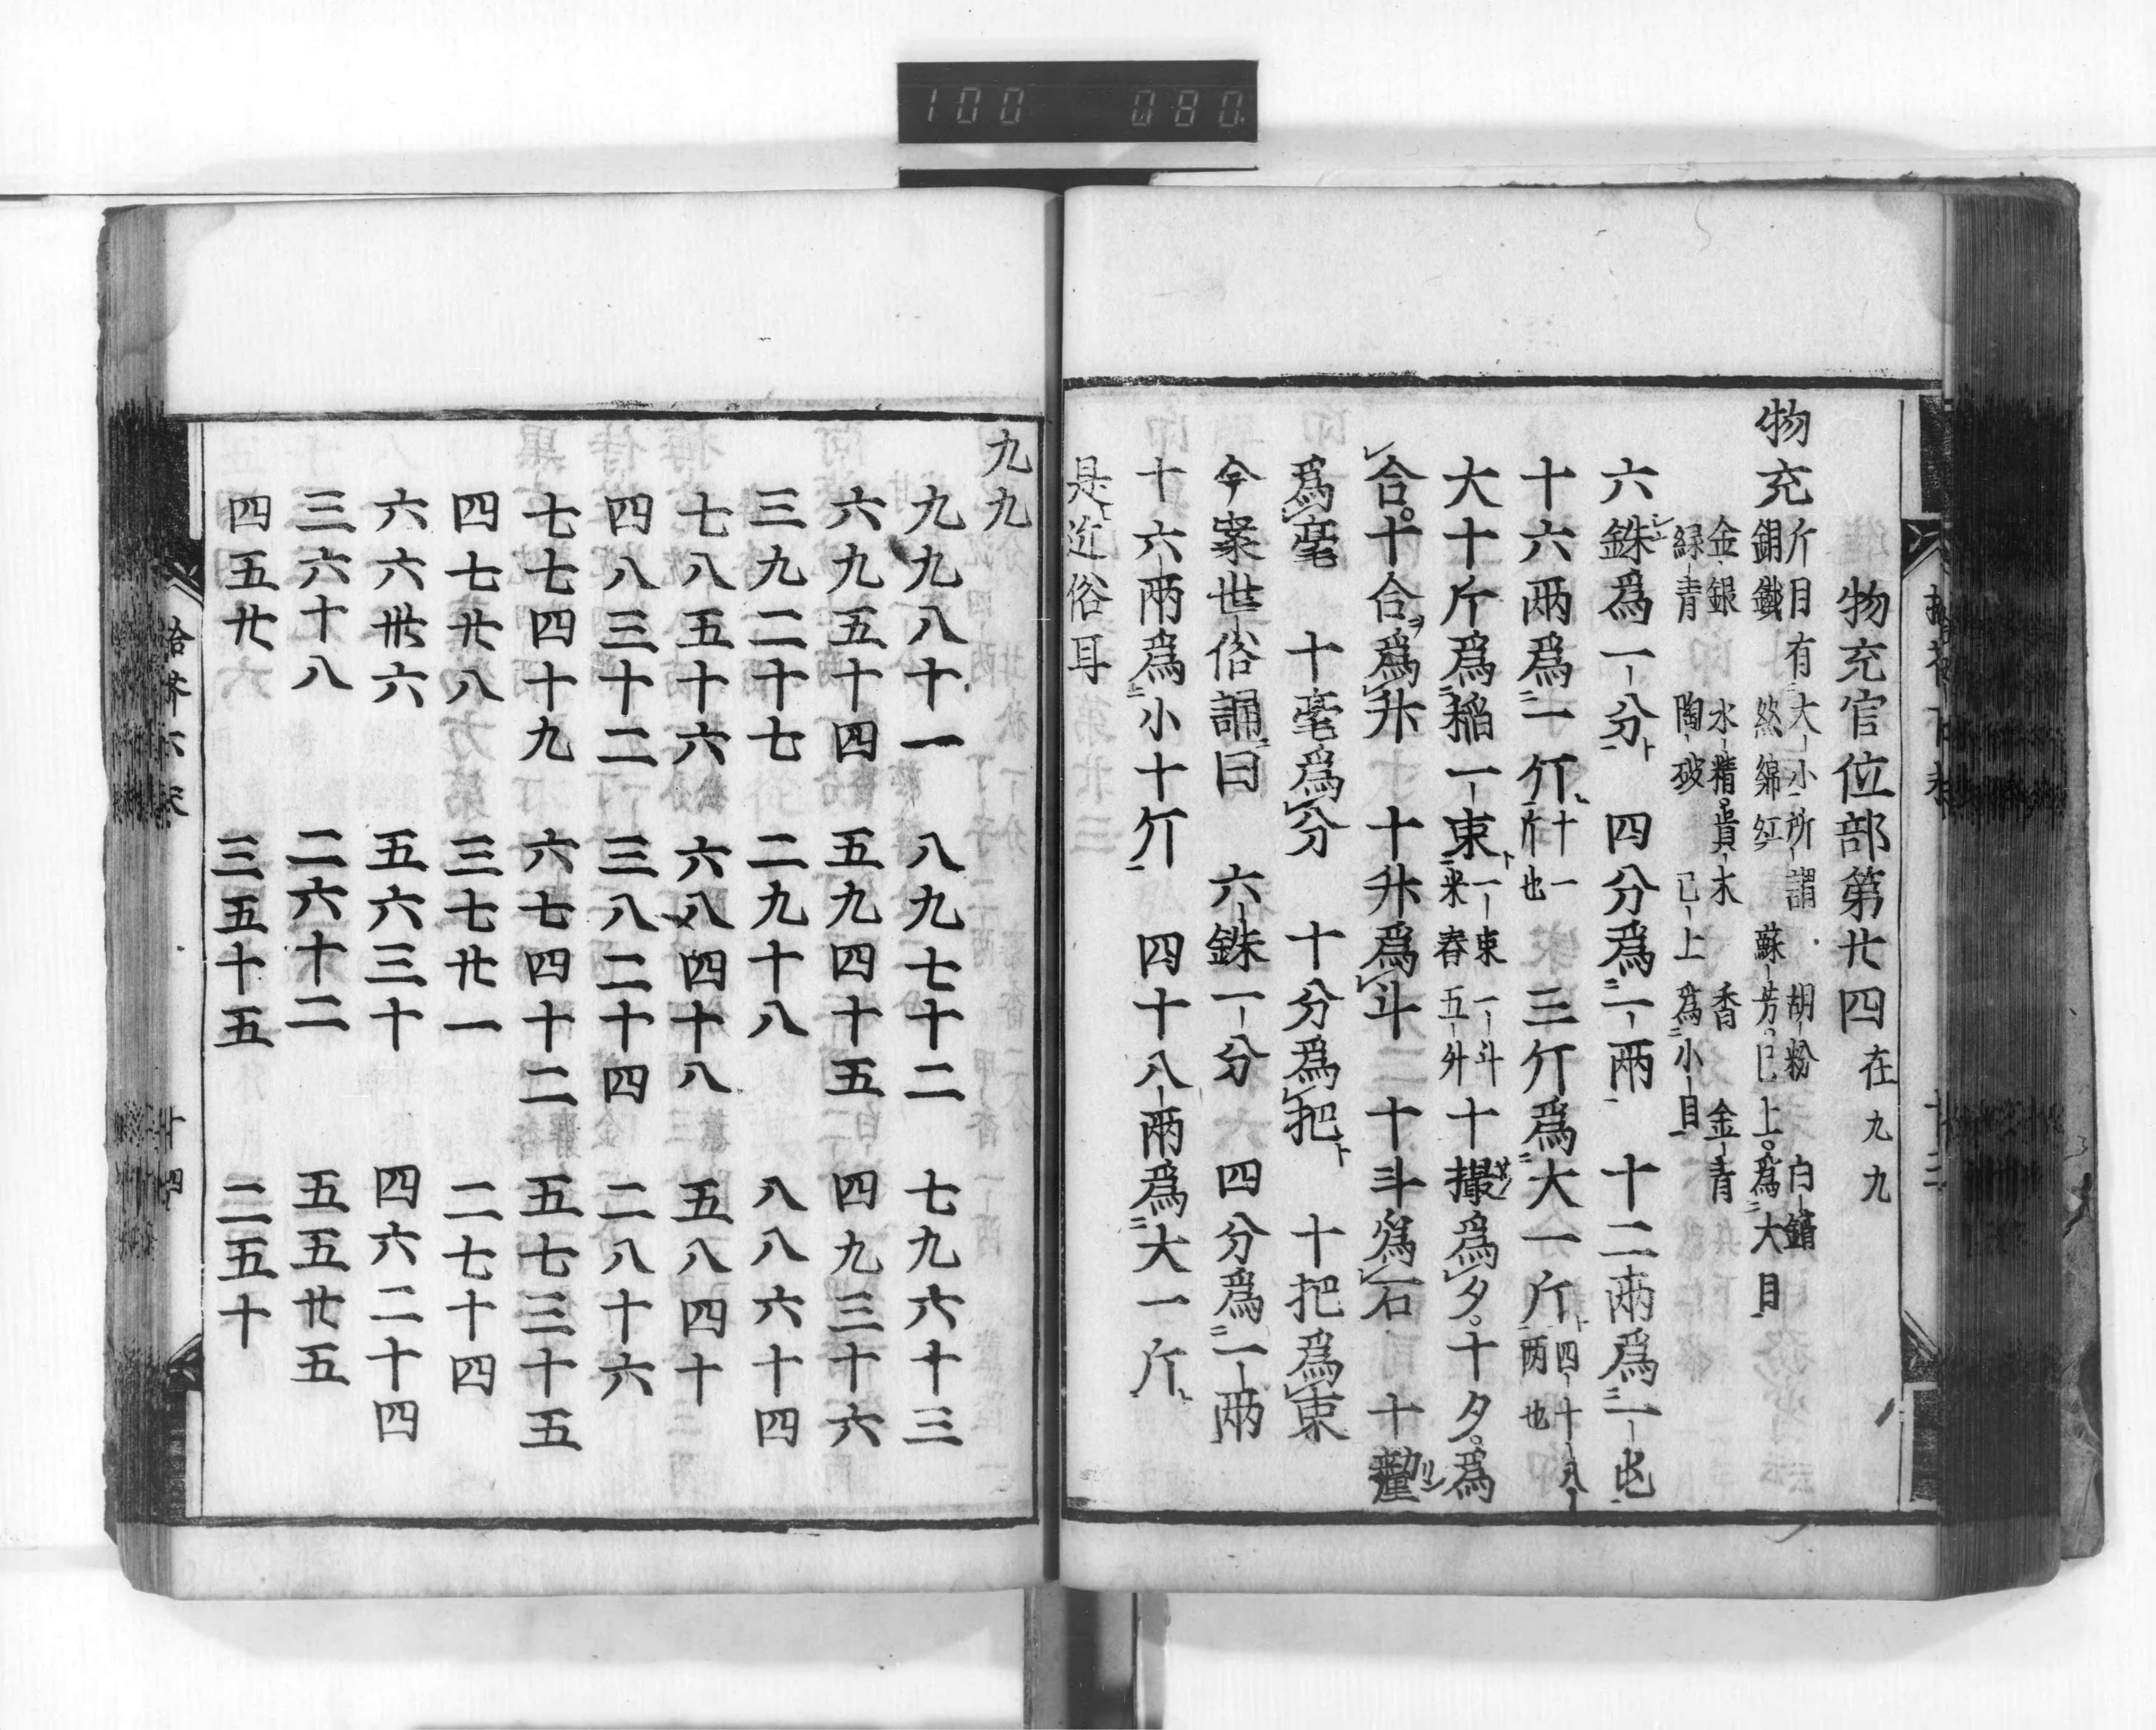 100 080
物充官位部第廿四 在九九
物充
斤目有大小所謂 胡粉 白鑞
銅鐵 然綿紅 蘇芳已上為大目
金銀 水精貫木 香 金青
緑青 陶破 已上為小目
六銖為一分 四分為一兩 十二兩為一屯
十六兩為一斤 十一斤也 三斤為大一斤 四十八兩也
大十斤為稲一束 一束一斗米舂五升 十撮為夕十夕為
合十合為升 十升為斗 十斗為石 十釐
為毫 十毫為分 十分為把 十把為束
今案世俗誦曰 六銖一分 四分為一兩
十六兩為小十斤 四十八兩為大一斤
是近俗耳
九九
九九八十一 八九七十二 七九六十三
六九五十四 五九四十五 四九三十六
三九二十七 二九十八 八八六十四
七八五十六 六八四十八 五八四十
四八三十二 三八二十四 二八十六
七七四十九 六七四十二 五七三十五
四七廿八 三七廿一 二七十四
六六卅六 五六三十 四六二十四
三六十八 二六十二 五五廿五
四五廿 三五十五 二五十